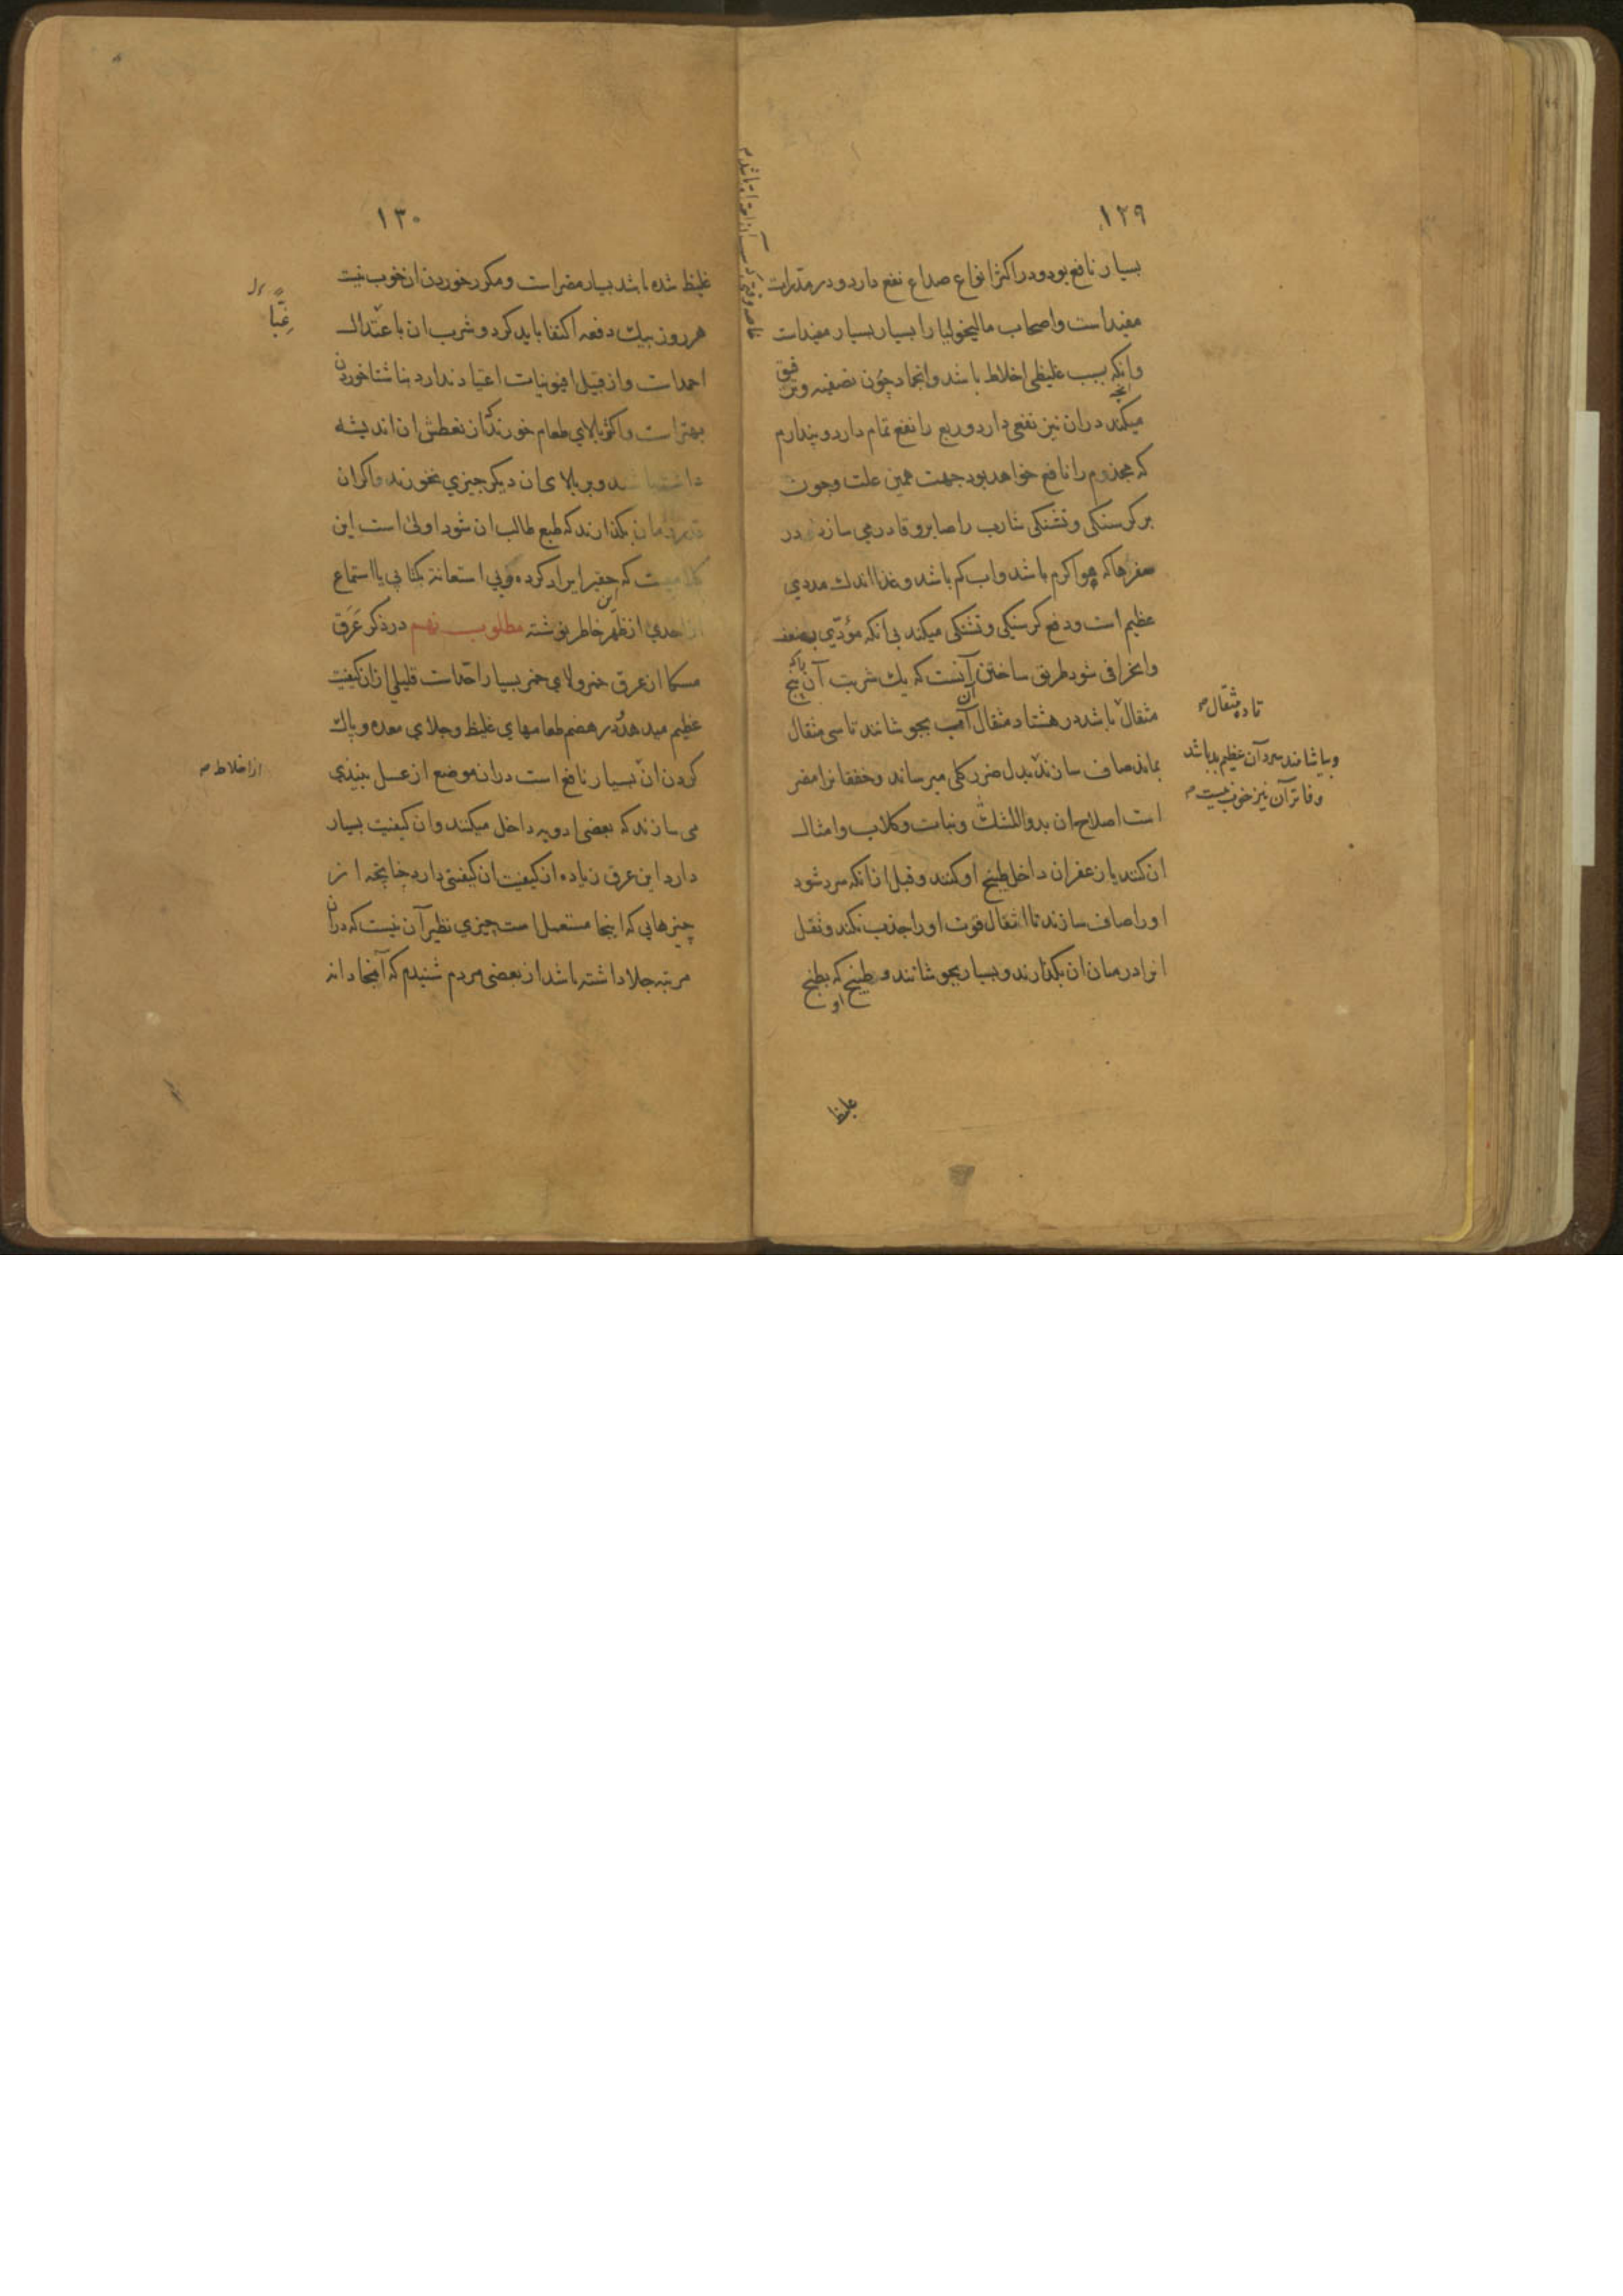 ١٢٩
بسیار نافع بود و در اکثر انواع صداع نفع دارد و در مقدرات
مفید است و اصحاب مالیخولیا را بسیار بسیار مفید است
وانکه بسبب غلیظی اخلاط باشد و انجماد چون تصفیه و ترقیق
میکند در ان نیز نفعی دارد و ربع را نفع تمام دارد و پندارم
که مجذوم را نافع خواهد بود جهت همین علت و چون
بر کرسنکی و تشنکی شارب را صابر و قادر می سازد در
سفرها که هوا کرم باشد و اب کم باشد و غذا اندک مددی
عظیم است و دفع کرسنکی و تشنکی میکند بی انکه مؤدّی بضعف
وانحرافی شود طریق ساختن آنست که یک شربت آن پنج
مثقال باشد در هشتاد مثقال آب بجوشانند تا سی مثقال
بماند صاف سازند بدل ضرر کلی میرساند و خفقانرا مضر
است اصلاح ان بدواالمشک و نبات و کلاب و امثال
ان کنند یا زعفران داخل طبیخ او کنند و قبل از انکه سرد شود
او را صاف سازند تا اثقال قوت او را جذب نکند و ثقل
انرا در میان ان بکذارند و بسیار بجوشانند و طبیخ که بطبخ
او
تا ده مثقال
و بیاشامند سرد آن عظیم بد باشد
و فاتر آن نیز خوب نیست
غلیظ
١٣٠
غلیظ شده باشد بسیار مضر است و مکرر خوردن ان خوب نیست
هر روز بیک دفعه اکتفا باید کرد و شرب ان باعتدال
احمد است و از قبیل افیونیات اعتیاد ندارد بناشتا خوردن
بهتر است و اکثر بالای طعام خورند که از تعطش ان اندیشه
داشته باشند و بر بالای ان دیکر چیزی نخورند و اکر ان
زمان بکذارند که طبع طالب ان شود اولی است این
کلامیست که حقیر ایراد کرده و بی استعانة بکتابی یا استماع
از احدی از ظهر خاطر نوشته مطلوب نهم در ذکر عَرَق
مسکا از عرق خمر و لای خمر بسیار احدّ است قلیلی از ان کیفیت
عظیم میدهد و در هضم طعامهای غلیظ و جلای معده و پاک
کردن ان بسیار نافع است در انموضع از عسل بنیذی
می سازند که بعضی ادویه داخل میکنند و ان کیفیت بسیار
دارد این عرق زیاده از کیفیت ان کیفیتی دارد چنانچه از
چیزهایی که اینجا مستعمل است چیزی نظیر آن نیست که در ان
مرتبه جلا داشته باشد از بعضی مردم شنیدم که آنجا دانه
غِبّاً
از اخلاط